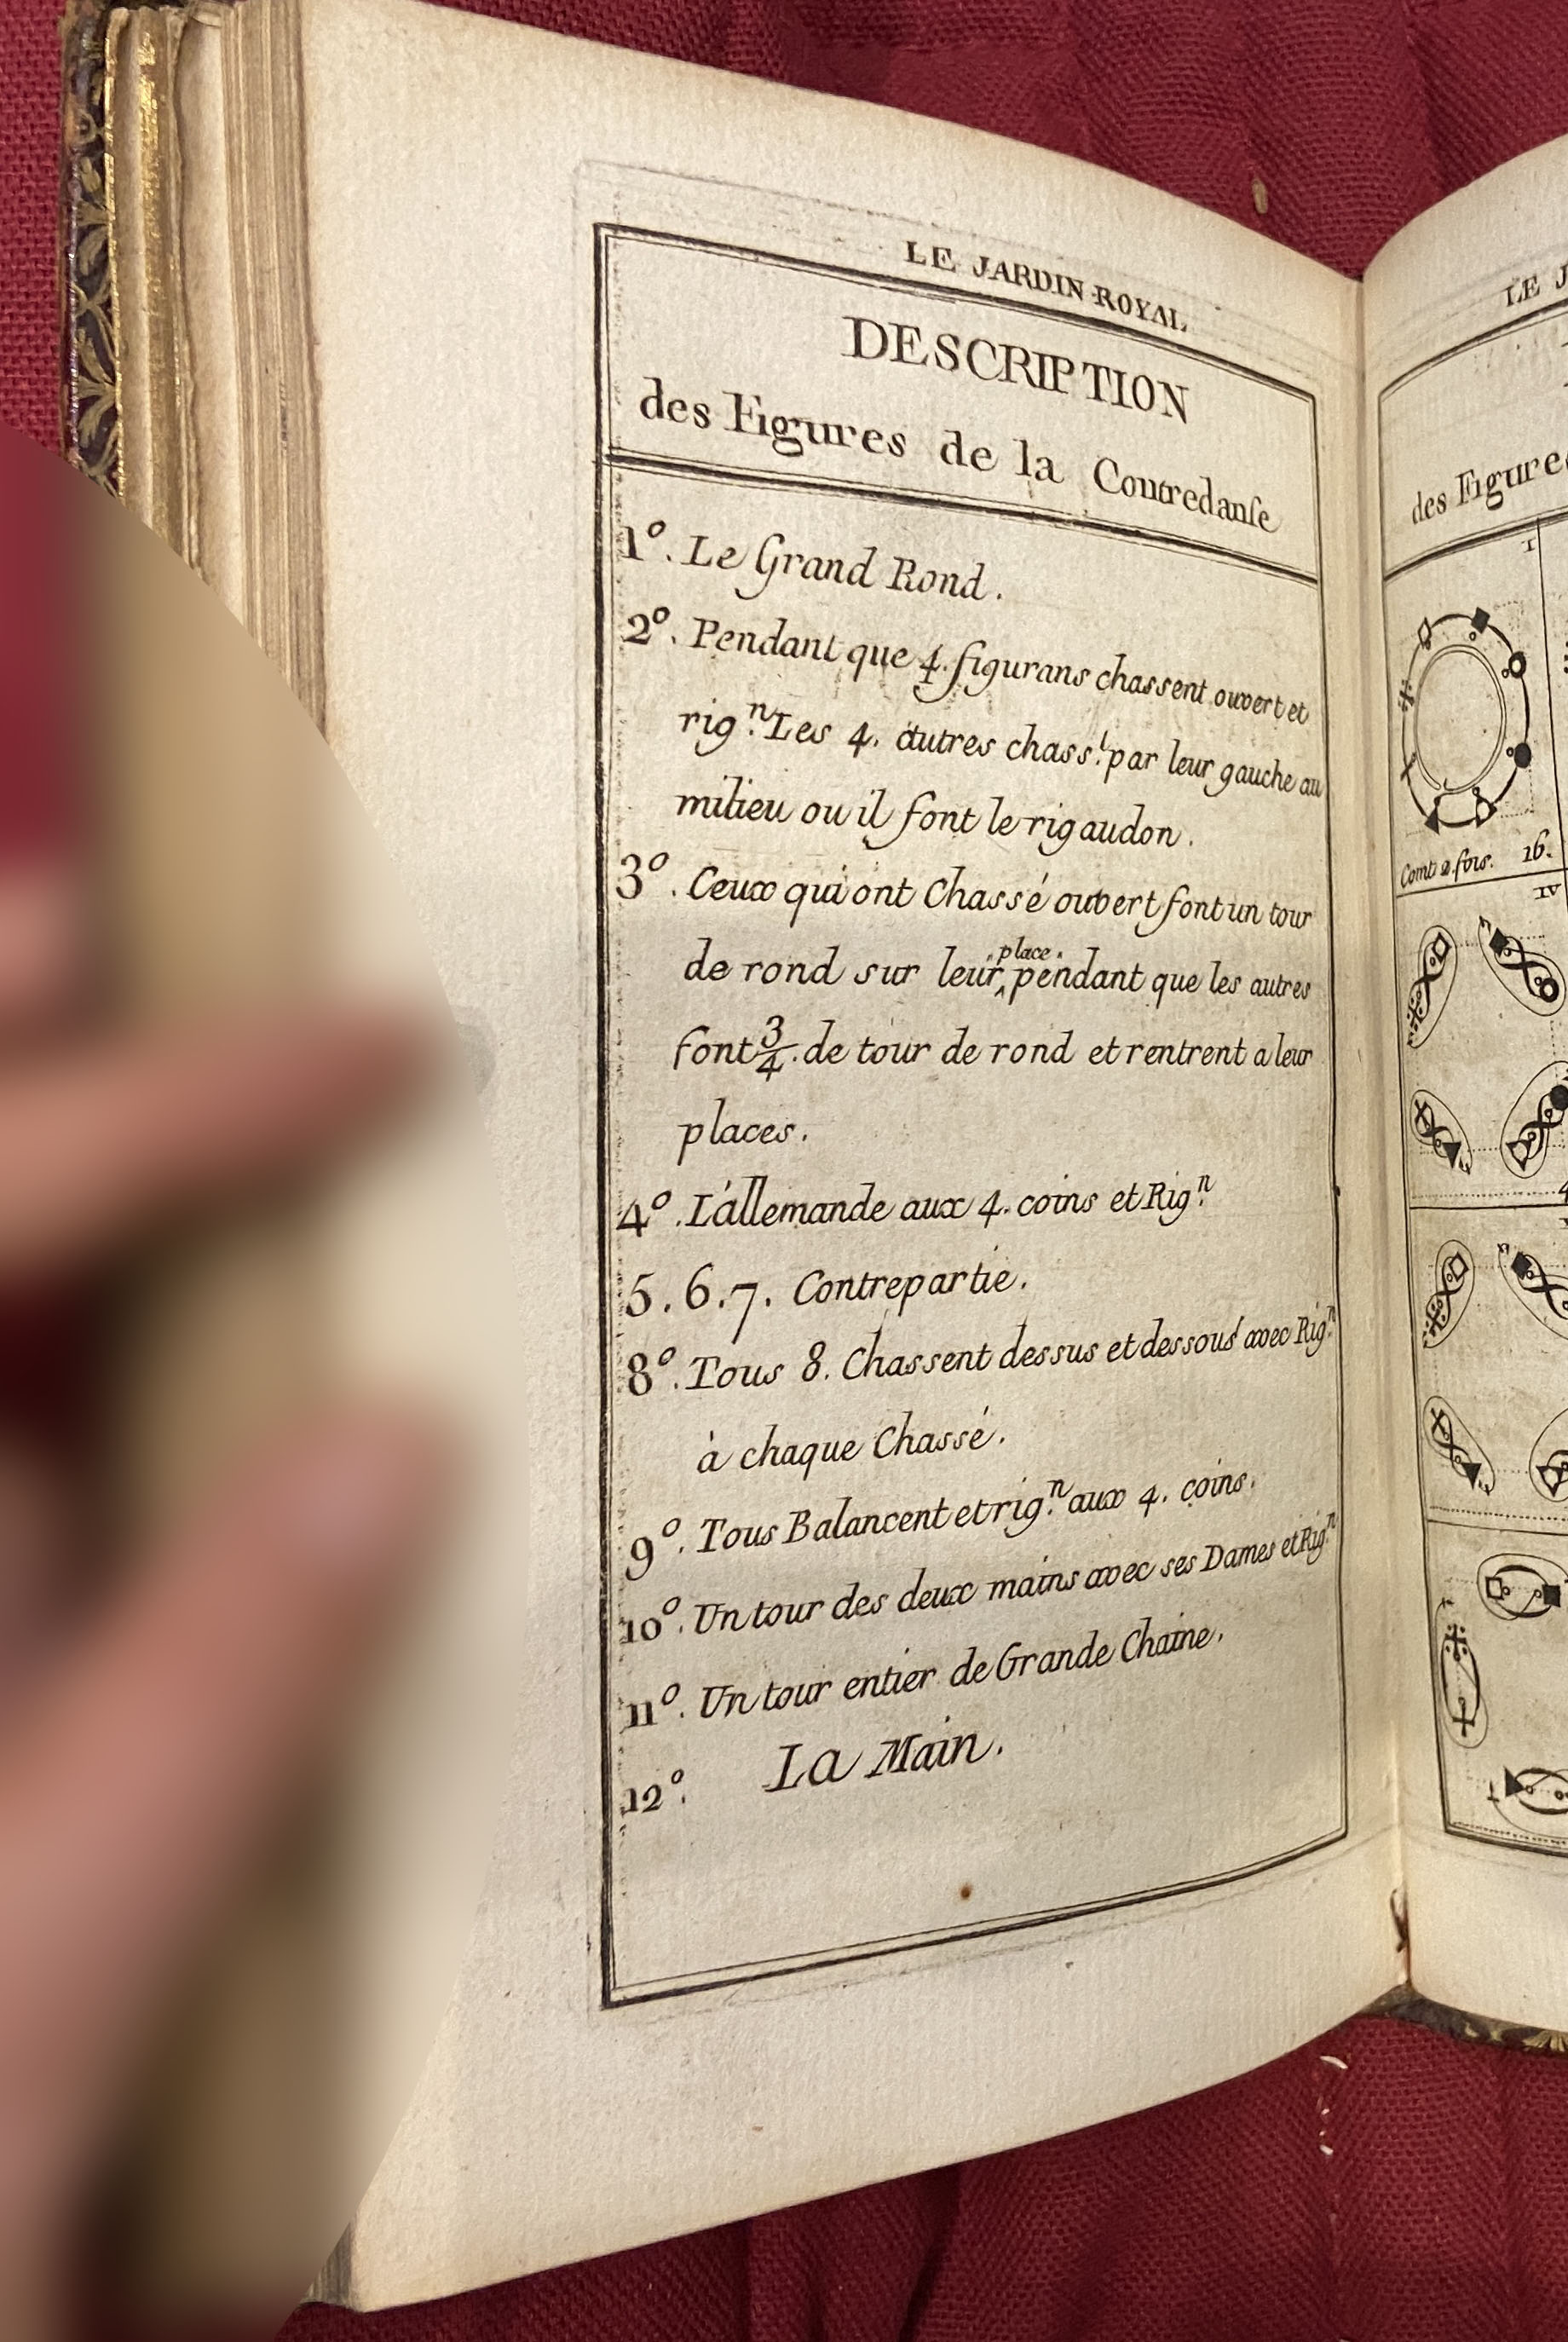 LE JARDIN ROYAL
DESCRIPTION
des Figures de la Contredanſe
1º. Le Grand Rond.
2º. Pendant que 4. figurans chassent ouvert et
rig.ⁿ Les 4. autres chass.ᵗ par leur gauche au
milieu ou il font le rigaudon.
3º. Ceux qui ont Chassé ouvert font un tour
de rond sur leur ‸place. pendant que les autres
font 3/4. de tour de rond et rentrent a leur
places.
4º. L'allemande aux 4. coins et Rig.ⁿ
5. 6. 7. Contrepartie.
8º. Tous 8. Chassent dessus et dessous avec Rig.ⁿ
à chaque Chassé.
9º. Tous Balancent et rig.ⁿ aux 4. coins.
10º. Un tour des deux mains avec ses Dames et Rig.ⁿ
11º. Un tour entier de Grande Chaine.
12º. La Main.
LE J
des Figure
I
Comt 2. fois. 16.
IV
4